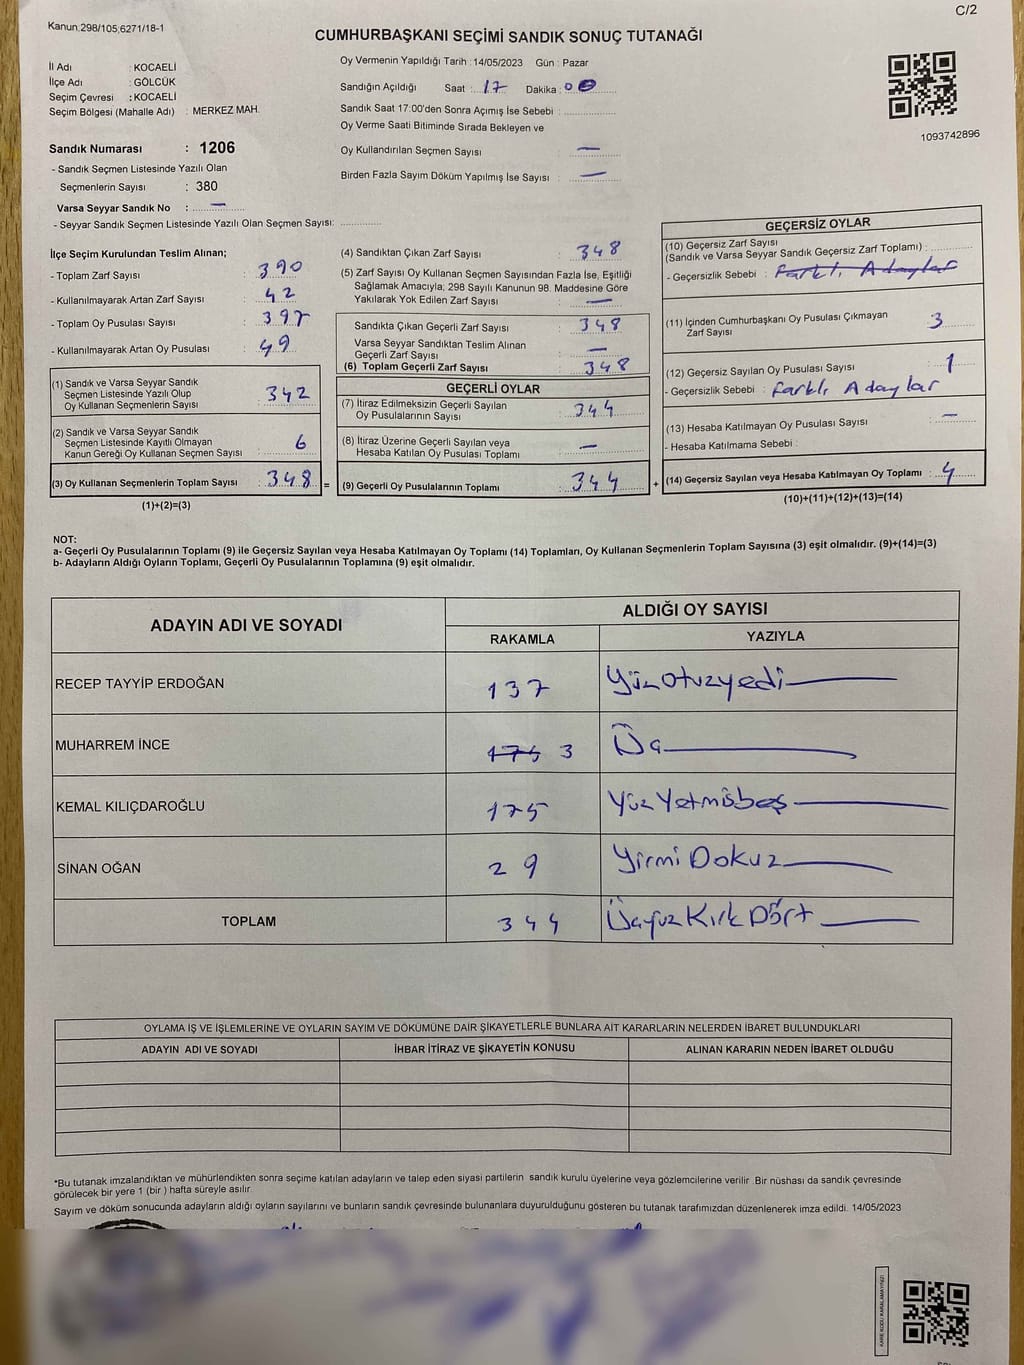 C/2
Kanun:298/105;6271/18-1
CUMHURBAŞKANI SEÇİMİ SANDIK SONUÇ TUTANAĞI
İl Adı : KOCAELİ
İlçe Adı : GÖLCÜK
Seçim Çevresi : KOCAELİ
Seçim Bölgesi (Mahalle Adı) : MERKEZ MAH.
Oy Vermenin Yapıldığı Tarih : 14/05/2023 Gün : Pazar
Sandığın Açıldığı Saat : 17 Dakika : 00
Sandık Saat 17:00'den Sonra Açımış İse Sebebi :
Oy Verme Saati Bitiminde Sırada Bekleyen ve
Oy Kullandırılan Seçmen Sayısı : —
Birden Fazla Sayım Döküm Yapılmış İse Sayısı : —
1093742896
Sandık Numarası : 1206
- Sandık Seçmen Listesinde Yazılı Olan
Seçmenlerin Sayısı : 380
Varsa Seyyar Sandık No : —
- Seyyar Sandık Seçmen Listesinde Yazılı Olan Seçmen Sayısı:
İlçe Seçim Kurulundan Teslim Alınan;
- Toplam Zarf Sayısı : 390
- Kullanılmayarak Artan Zarf Sayısı : 42
- Toplam Oy Pusulası Sayısı : 397
- Kullanılmayarak Artan Oy Pusulası : 49
(1) Sandık ve Varsa Seyyar Sandık
Seçmen Listesinde Yazılı Olup
Oy Kullanan Seçmenlerin Sayısı : 342
(2) Sandık ve Varsa Seyyar Sandık
Seçmen Listesinde Kayıtlı Olmayan
Kanun Gereği Oy Kullanan Seçmen Sayısı : 6
(3) Oy Kullanan Seçmenlerin Toplam Sayısı : 348 =
(1)+(2)=(3)
(4) Sandıktan Çıkan Zarf Sayısı : 348
(5) Zarf Sayısı Oy Kullanan Seçmen Sayısından Fazla İse, Eşitliği
Sağlamak Amacıyla; 298 Sayılı Kanunun 98. Maddesine Göre
Yakılarak Yok Edilen Zarf Sayısı : —
Sandıkta Çıkan Geçerli Zarf Sayısı : 348
Varsa Seyyar Sandıktan Teslim Alınan
Geçerli Zarf Sayısı : —
(6) Toplam Geçerli Zarf Sayısı : 348
GEÇERLİ OYLAR
(7) İtiraz Edilmeksizin Geçerli Sayılan
Oy Pusulalarının Sayısı : 344
(8) İtiraz Üzerine Geçerli Sayılan veya
Hesaba Katılan Oy Pusulası Toplamı : —
(9) Geçerli Oy Pusulalarının Toplamı : 344 +
GEÇERSİZ OYLAR
(10) Geçersiz Zarf Sayısı
(Sandık ve Varsa Seyyar Sandık Geçersiz Zarf Toplamı) :
- Geçersizlik Sebebi : Farklı Adaylar
(11) İçinden Cumhurbaşkanı Oy Pusulası Çıkmayan
Zarf Sayısı : 3
(12) Geçersiz Sayılan Oy Pusulası Sayısı : 1
- Geçersizlik Sebebi : Farklı Adaylar
(13) Hesaba Katılmayan Oy Pusulası Sayısı : —
- Hesaba Katılmama Sebebi :
(14) Geçersiz Sayılan veya Hesaba Katılmayan Oy Toplamı : 4
(10)+(11)+(12)+(13)=(14)
NOT:
a- Geçerli Oy Pusulalarının Toplamı (9) ile Geçersiz Sayılan veya Hesaba Katılmayan Oy Toplamı (14) Toplamları, Oy Kullanan Seçmenlerin Toplam Sayısına (3) eşit olmalıdır. (9)+(14)=(3)
b- Adayların Aldığı Oyların Toplamı, Geçerli Oy Pusulalarının Toplamına (9) eşit olmalıdır.
ADAYIN ADI VE SOYADI ALDIĞI OY SAYISI
RAKAMLA YAZIYLA
RECEP TAYYİP ERDOĞAN 137 Yüzotuzyedi
MUHARREM İNCE 175 3 Üç
KEMAL KILIÇDAROĞLU 175 Yüz Yetmişbeş
SİNAN OĞAN 29 Yirmi Dokuz
TOPLAM 344 Üçyüz Kırk Dört
OYLAMA İŞ VE İŞLEMLERİNE VE OYLARIN SAYIM VE DÖKÜMÜNE DAİR ŞİKAYETLERLE BUNLARA AİT KARARLARIN NELERDEN İBARET BULUNDUKLARI
ADAYIN ADI VE SOYADI İHBAR İTİRAZ VE ŞİKAYETİN KONUSU ALINAN KARARIN NEDEN İBARET OLDUĞU
*Bu tutanak imzalandıktan ve mühürlendikten sonra seçime katılan adayların ve talep eden siyasi partilerin sandık kurulu üyelerine veya gözlemcilerine verilir. Bir nüshası da sandık çevresinde
görülecek bir yere 1 (bir ) hafta süreyle asılır.
Sayım ve döküm sonucunda adayların aldığı oyların sayılarını ve bunların sandık çevresinde bulunanlara duyurulduğunu gösteren bu tutanak tarafımızdan düzenlenerek imza edildi. 14/05/2023